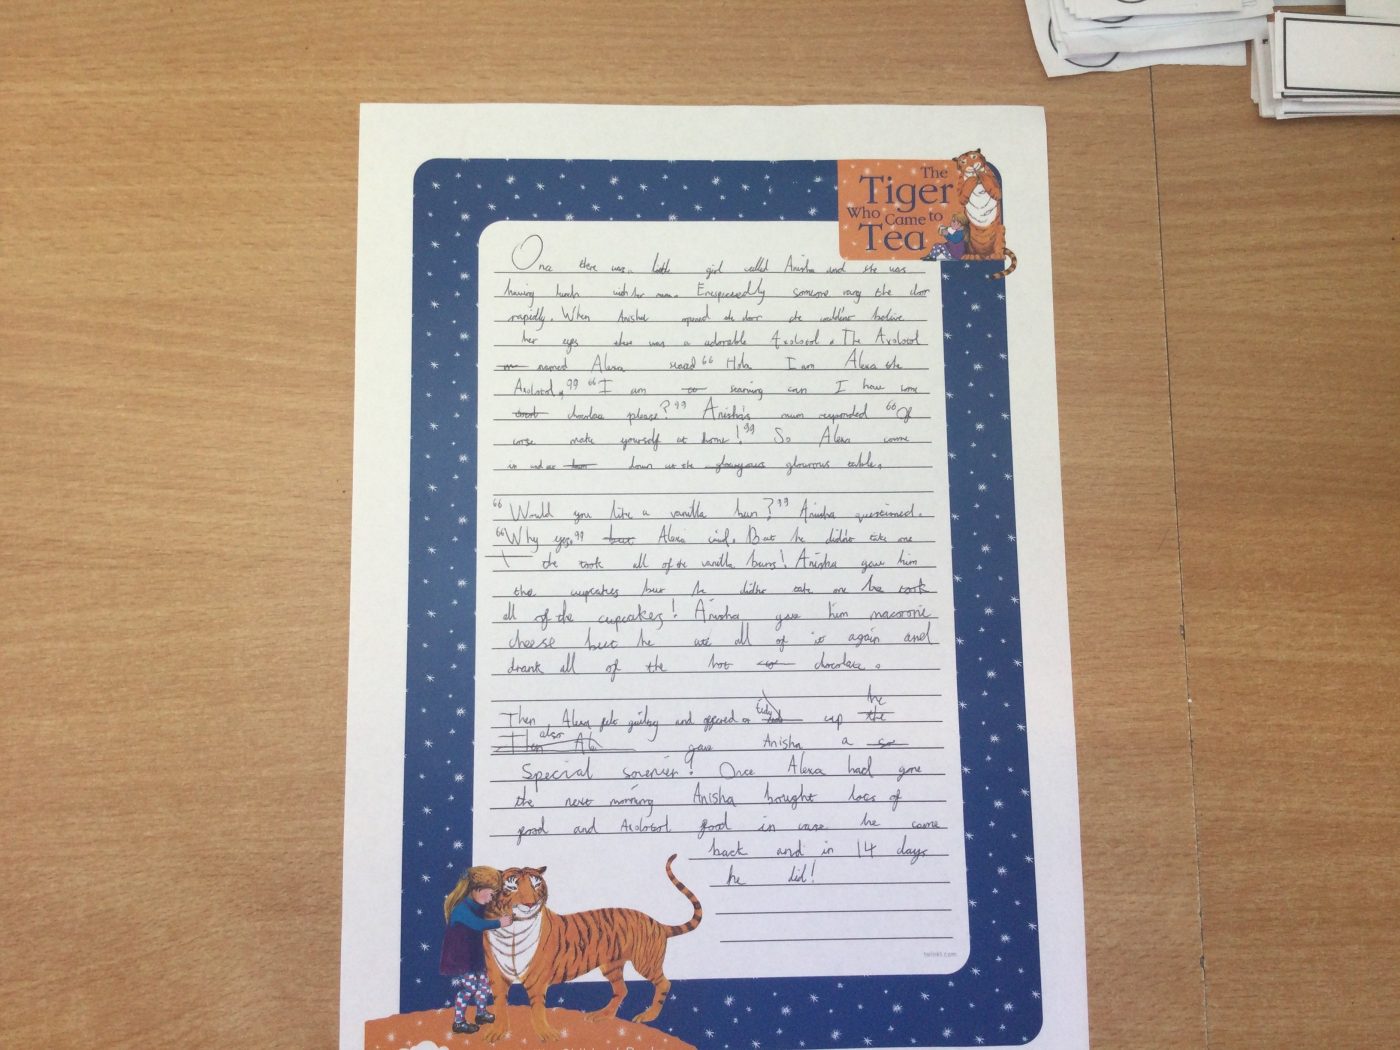 The
Tiger
Who Came to
Tea
Once there was a little girl called Anisha and she was
having lunch with her mum. Enexpectedly someone rang the door
rapidly. When Anisha opened the door she couldn't believe
her eyes there was a adorable Axolotol. The Axolotol
named Alexa said “Hola I am Alexa the
Axolotol,” “I am starving can I have some
chocolate please?” Anisha's mum responded “Of
corse make yourself at home!” So Alexa came
in and sat down at the glourous table.
“Would you like a vanilla bun?” Anisha questioned.
“Why yes.” Alexa said. But he didn't take one
he took all of the vanilla buns! Anisha gave him
the cupcakes but he didn't take one he took
all of the cupcakes! Anisha gave him macorine
cheese but he ate all of it again and
drank all of the hot chocolate.
Then, Alexa felt guilty and offered to tidy up he
also gave Anisha a
Special sovenier! Once Alexa had gone
the next morning Anisha bought lots of
food and Axolotol food in case he came
back and in 14 days
he did!
twinkl.com